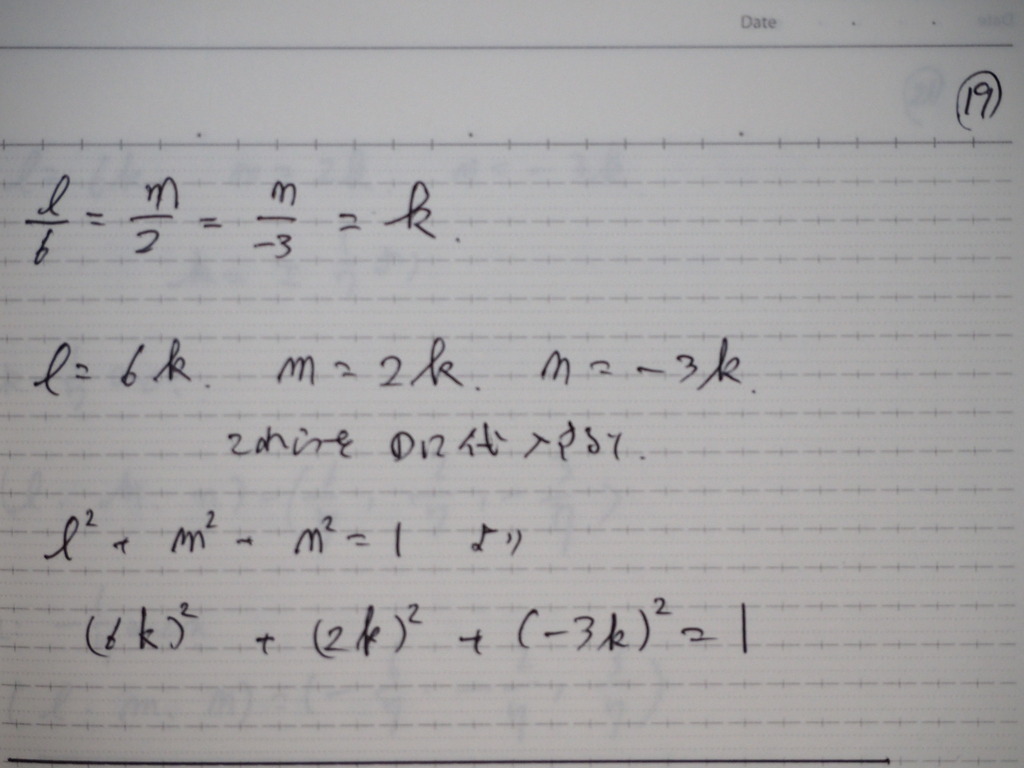 Date
⑲
l/6 = m/2 = n/-3 = k.
l = 6k. m = 2k. n = -3k.
これらを ①に代入する.
l² + m² + n² = 1 より
(6k)² + (2k)² + (-3k)² = 1